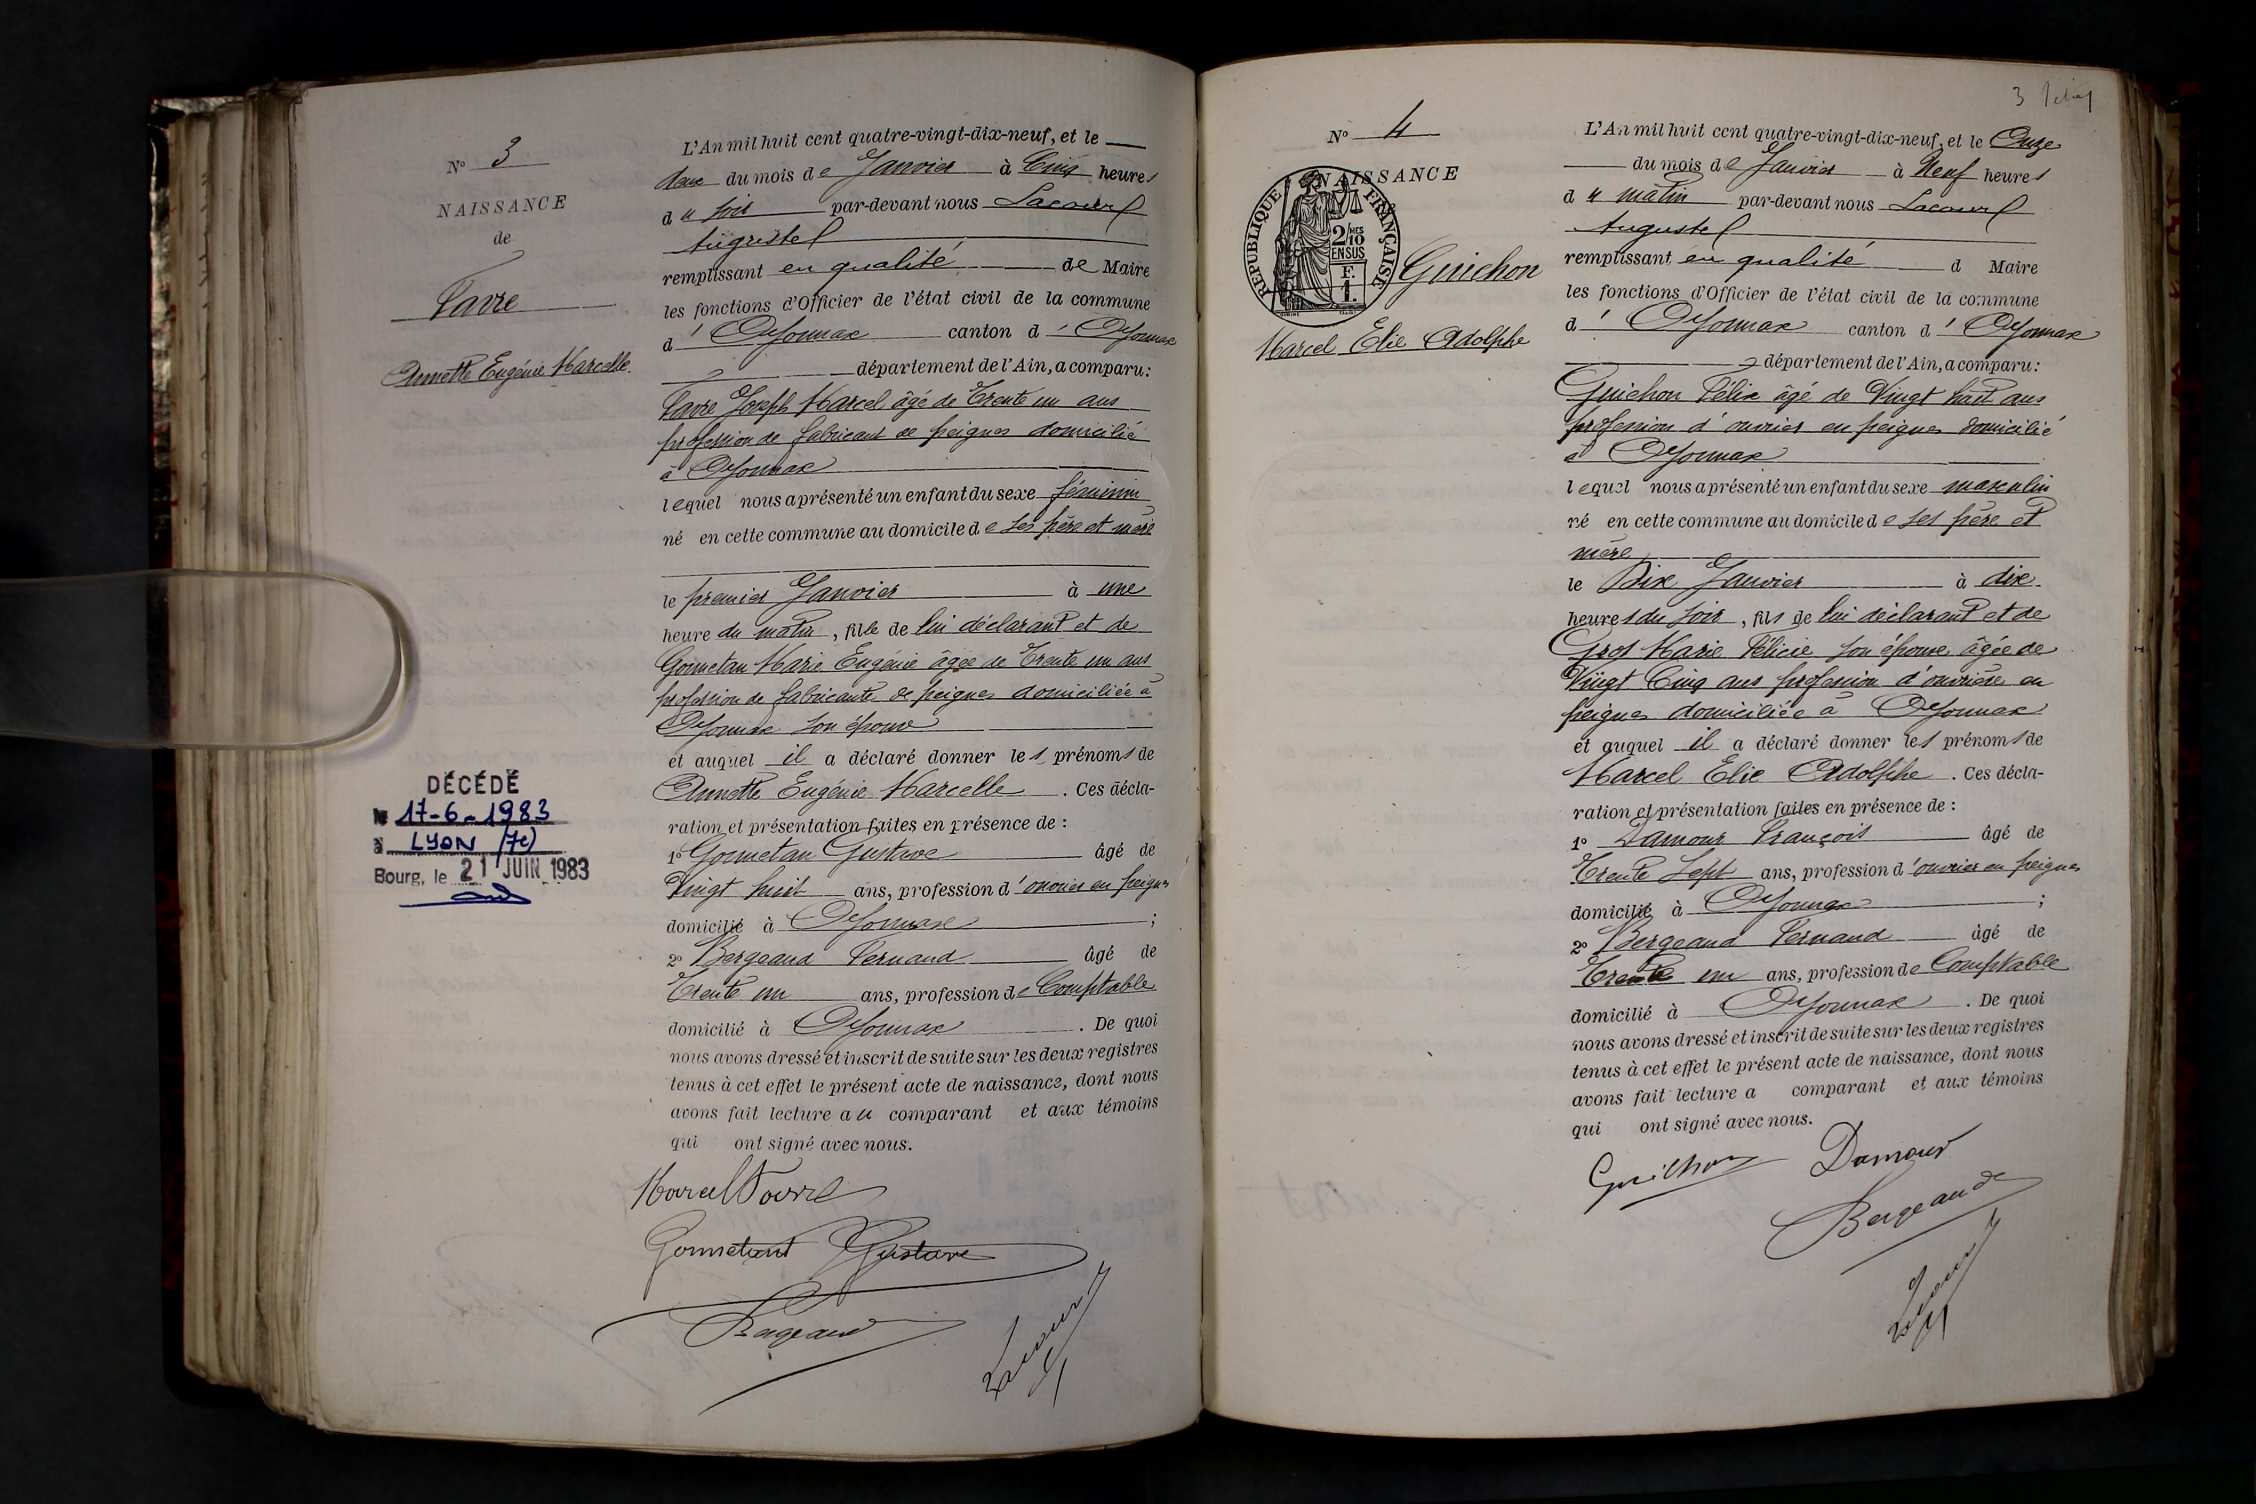 N° 3
NAISSANCE
de
Favre
Annette Eugénie Marcelle
DÉCÉDÉ
le 17-6-1983
à LYON (7e)
Bourg, le 21 JUIN 1983
L'An mil huit cent quatre-vingt-dix-neuf, et le
deux du mois de Janvier à Cinq heures
du soir par-devant nous Lacour
Auguste
remplissant en qualité de Maire
les fonctions d'Officier de l'état civil de la commune
d' Oyonnax canton d' Oyonnax
département de l'Ain, a comparu:
Favre Joseph Marcel âgé de Trente un ans
profession de fabricant de peignes domicilié
à Oyonnax
lequel nous a présenté un enfant du sexe féminin
né en cette commune au domicile de ses père et mère
le premier Janvier à une
heure du matin, fille de lui déclarant et de
Gonnetan Marie Eugénie âgée de Trente un ans
profession de fabricante de peignes domiciliée à
Oyonnax son épouse
et auquel il a déclaré donner les prénoms de
Annette Eugénie Marcelle. Ces décla-
ration et présentation faites en présence de :
1° Gonnetan Gustave âgé de
Vingt huit ans, profession d'ouvrier en peignes
domicilié à Oyonnax ;
2° Bergeaud Fernand âgé de
Trente un ans, profession de Comptable
domicilié à Oyonnax. De quoi
nous avons dressé et inscrit de suite sur les deux registres
tenus à cet effet le présent acte de naissance, dont nous
avons fait lecture au comparant et aux témoins
qui ont signé avec nous.
Marcel Favre
Gonnetant Gustave
Bergeaud
Lacour
3
N° 4
NAISSANCE
RÉPUBLIQUE FRANÇAISE
2/10MES
EN SUS
F.
1.
Guichon
Marcel Elie Adolphe
L'An mil huit cent quatre-vingt-dix-neuf, et le Onze
du mois de Janvier à Neuf heures
du matin par-devant nous Lacour
Auguste
remplissant en qualité d Maire
les fonctions d'Officier de l'état civil de la commune
d' Oyonnax canton d' Oyonnax
département de l'Ain, a comparu:
Guichon Félix âgé de Vingt huit ans
profession d'ouvrier en peignes domicilié
à Oyonnax
lequel nous a présenté un enfant du sexe masculin
né en cette commune au domicile de ses père et
mère
le Dix Janvier à dix
heures du soir, fils de lui déclarant et de
Gros Marie Félicie son épouse âgée de
Vingt Cinq ans profession d'ouvrière en
peignes domiciliée à Oyonnax
et auquel il a déclaré donner les prénoms de
Marcel Elie Adolphe. Ces décla-
ration et présentation faites en présence de :
1° Damour François âgé de
Trente Sept ans, profession d'ouvrier en peignes
domicilié à Oyonnax ;
2° Bergeaud Fernand âgé de
Trente un ans, profession de Comptable
domicilié à Oyonnax. De quoi
nous avons dressé et inscrit de suite sur les deux registres
tenus à cet effet le présent acte de naissance, dont nous
avons fait lecture a comparant et aux témoins
qui ont signé avec nous.
Guichon Damour
Bergeaud
Lacour